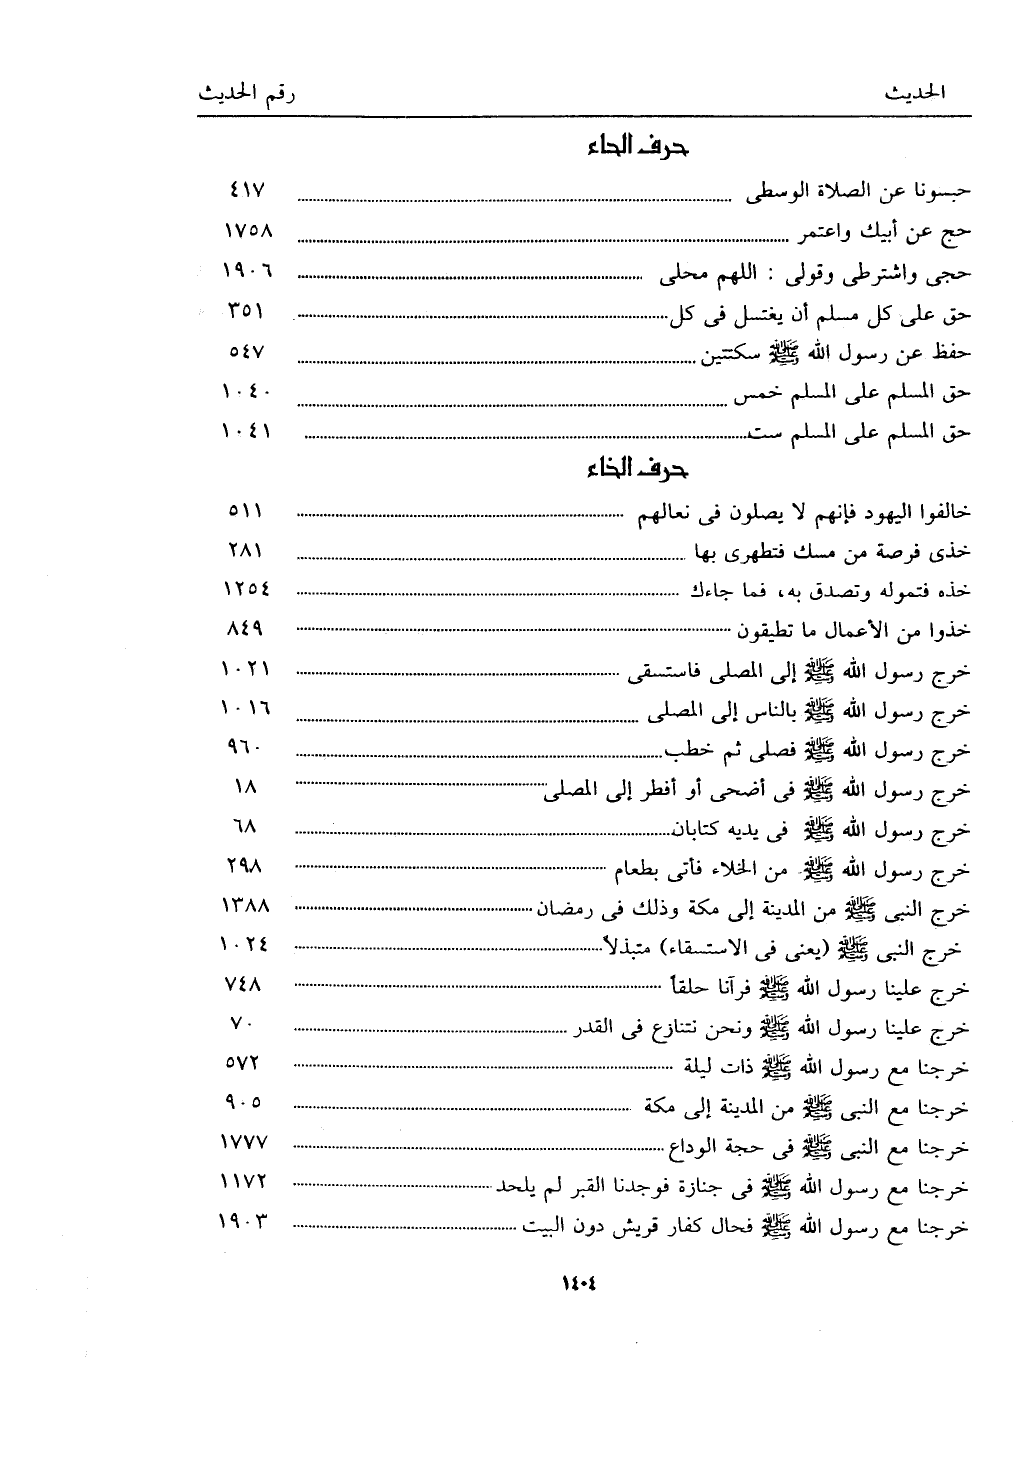 الحديث رقم الحديث
حرف الحاء
حبسونا عن الصلاة الوسطى ........ ٤١٧
حج عن أبيك واعتمر ........ ١٧٥٨
حجى واشترطى وقولى : اللهم محلى ........ ١٩٠٦
حق على كل مسلم أن يغتسل فى كل ........ ٣٥١
حفظ عن رسول الله ﷺ سكتتين ........ ٥٤٧
حق المسلم على المسلم خمس ........ ١٠٤٠
حق المسلم على المسلم ست ........ ١٠٤١
حرف الخاء
خالفوا اليهود فإنهم لا يصلون فى نعالهم ........ ٥١١
خذى فرصة من مسك فتطهرى بها ........ ٢٨١
خذه فتموله وتصدق به، فما جاءك ........ ١٢٥٤
خذوا من الأعمال ما تطيقون ........ ٨٤٩
خرج رسول الله ﷺ إلى المصلى فاستسقى ........ ١٠٢١
خرج رسول الله ﷺ بالناس إلى المصلى ........ ١٠١٦
خرج رسول الله ﷺ فصلى ثم خطب ........ ٩٦٠
خرج رسول الله ﷺ فى أضحى أو أفطر إلى المصلى ........ ١٨
خرج رسول الله ﷺ فى يديه كتابان ........ ٦٨
خرج رسول الله ﷺ من الخلاء فأتى بطعام ........ ٢٩٨
خرج النبى ﷺ من المدينة إلى مكة وذلك فى رمضان ........ ١٣٨٨
خرج النبى ﷺ (يعنى فى الاستسقاء) متبذلاً ........ ١٠٢٤
خرج علينا رسول الله ﷺ فرآنا حلقاً ........ ٧٤٨
خرج علينا رسول الله ﷺ ونحن نتنازع فى القدر ........ ٧٠
خرجنا مع رسول الله ﷺ ذات ليلة ........ ٥٧٢
خرجنا مع النبى ﷺ من المدينة إلى مكة ........ ٩٠٥
خرجنا مع النبى ﷺ فى حجة الوداع ........ ١٧٧٧
خرجنا مع رسول الله ﷺ فى جنازة فوجدنا القبر لم يلحد ........ ١١٧٢
خرجنا مع رسول الله ﷺ فحال كفار قريش دون البيت ........ ١٩٠٣
١٤٠٤